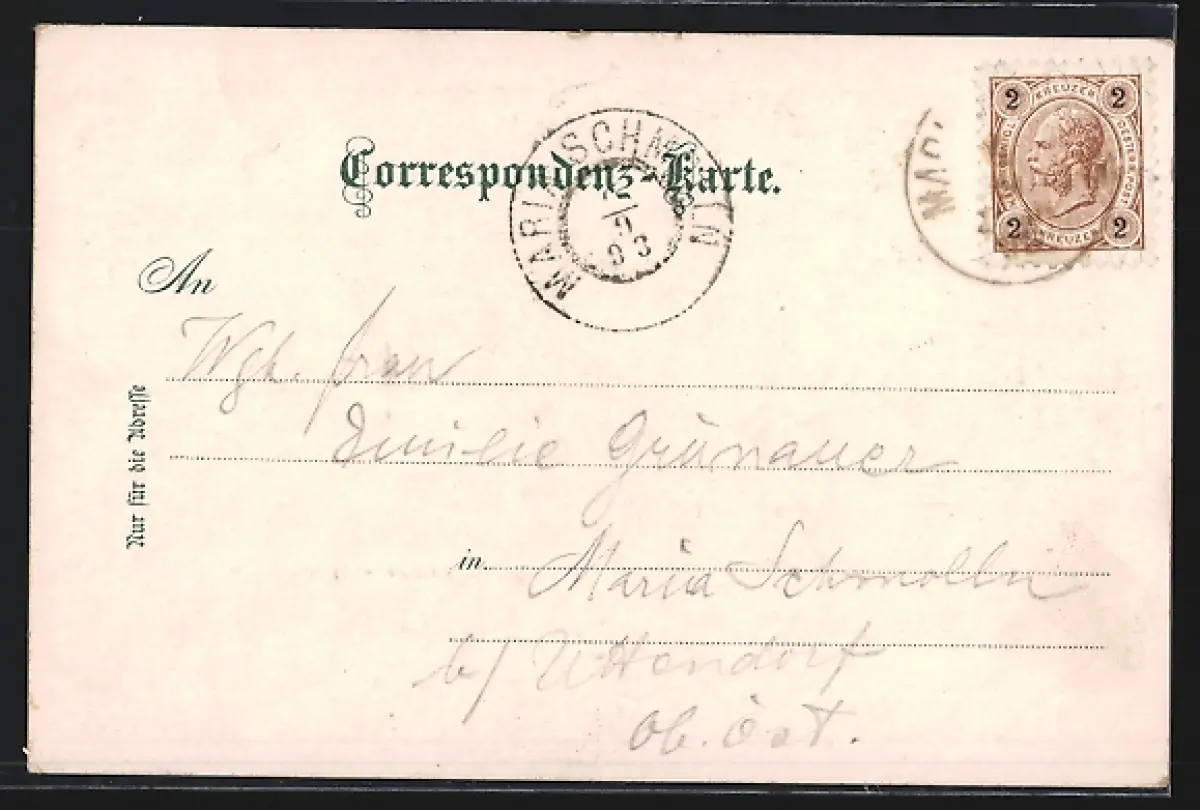 Correspondenz-Karte.
MARIA SCHMOLLN
12
93
2 KREUZER 2
OESTERR. POST
2 KREUZER 2
MA
An
Wgb. Frau
Emilie Grünauer
in Maria Schmolln
b/ Uttendorf
Ob. Öst.
Nur für die Adresse